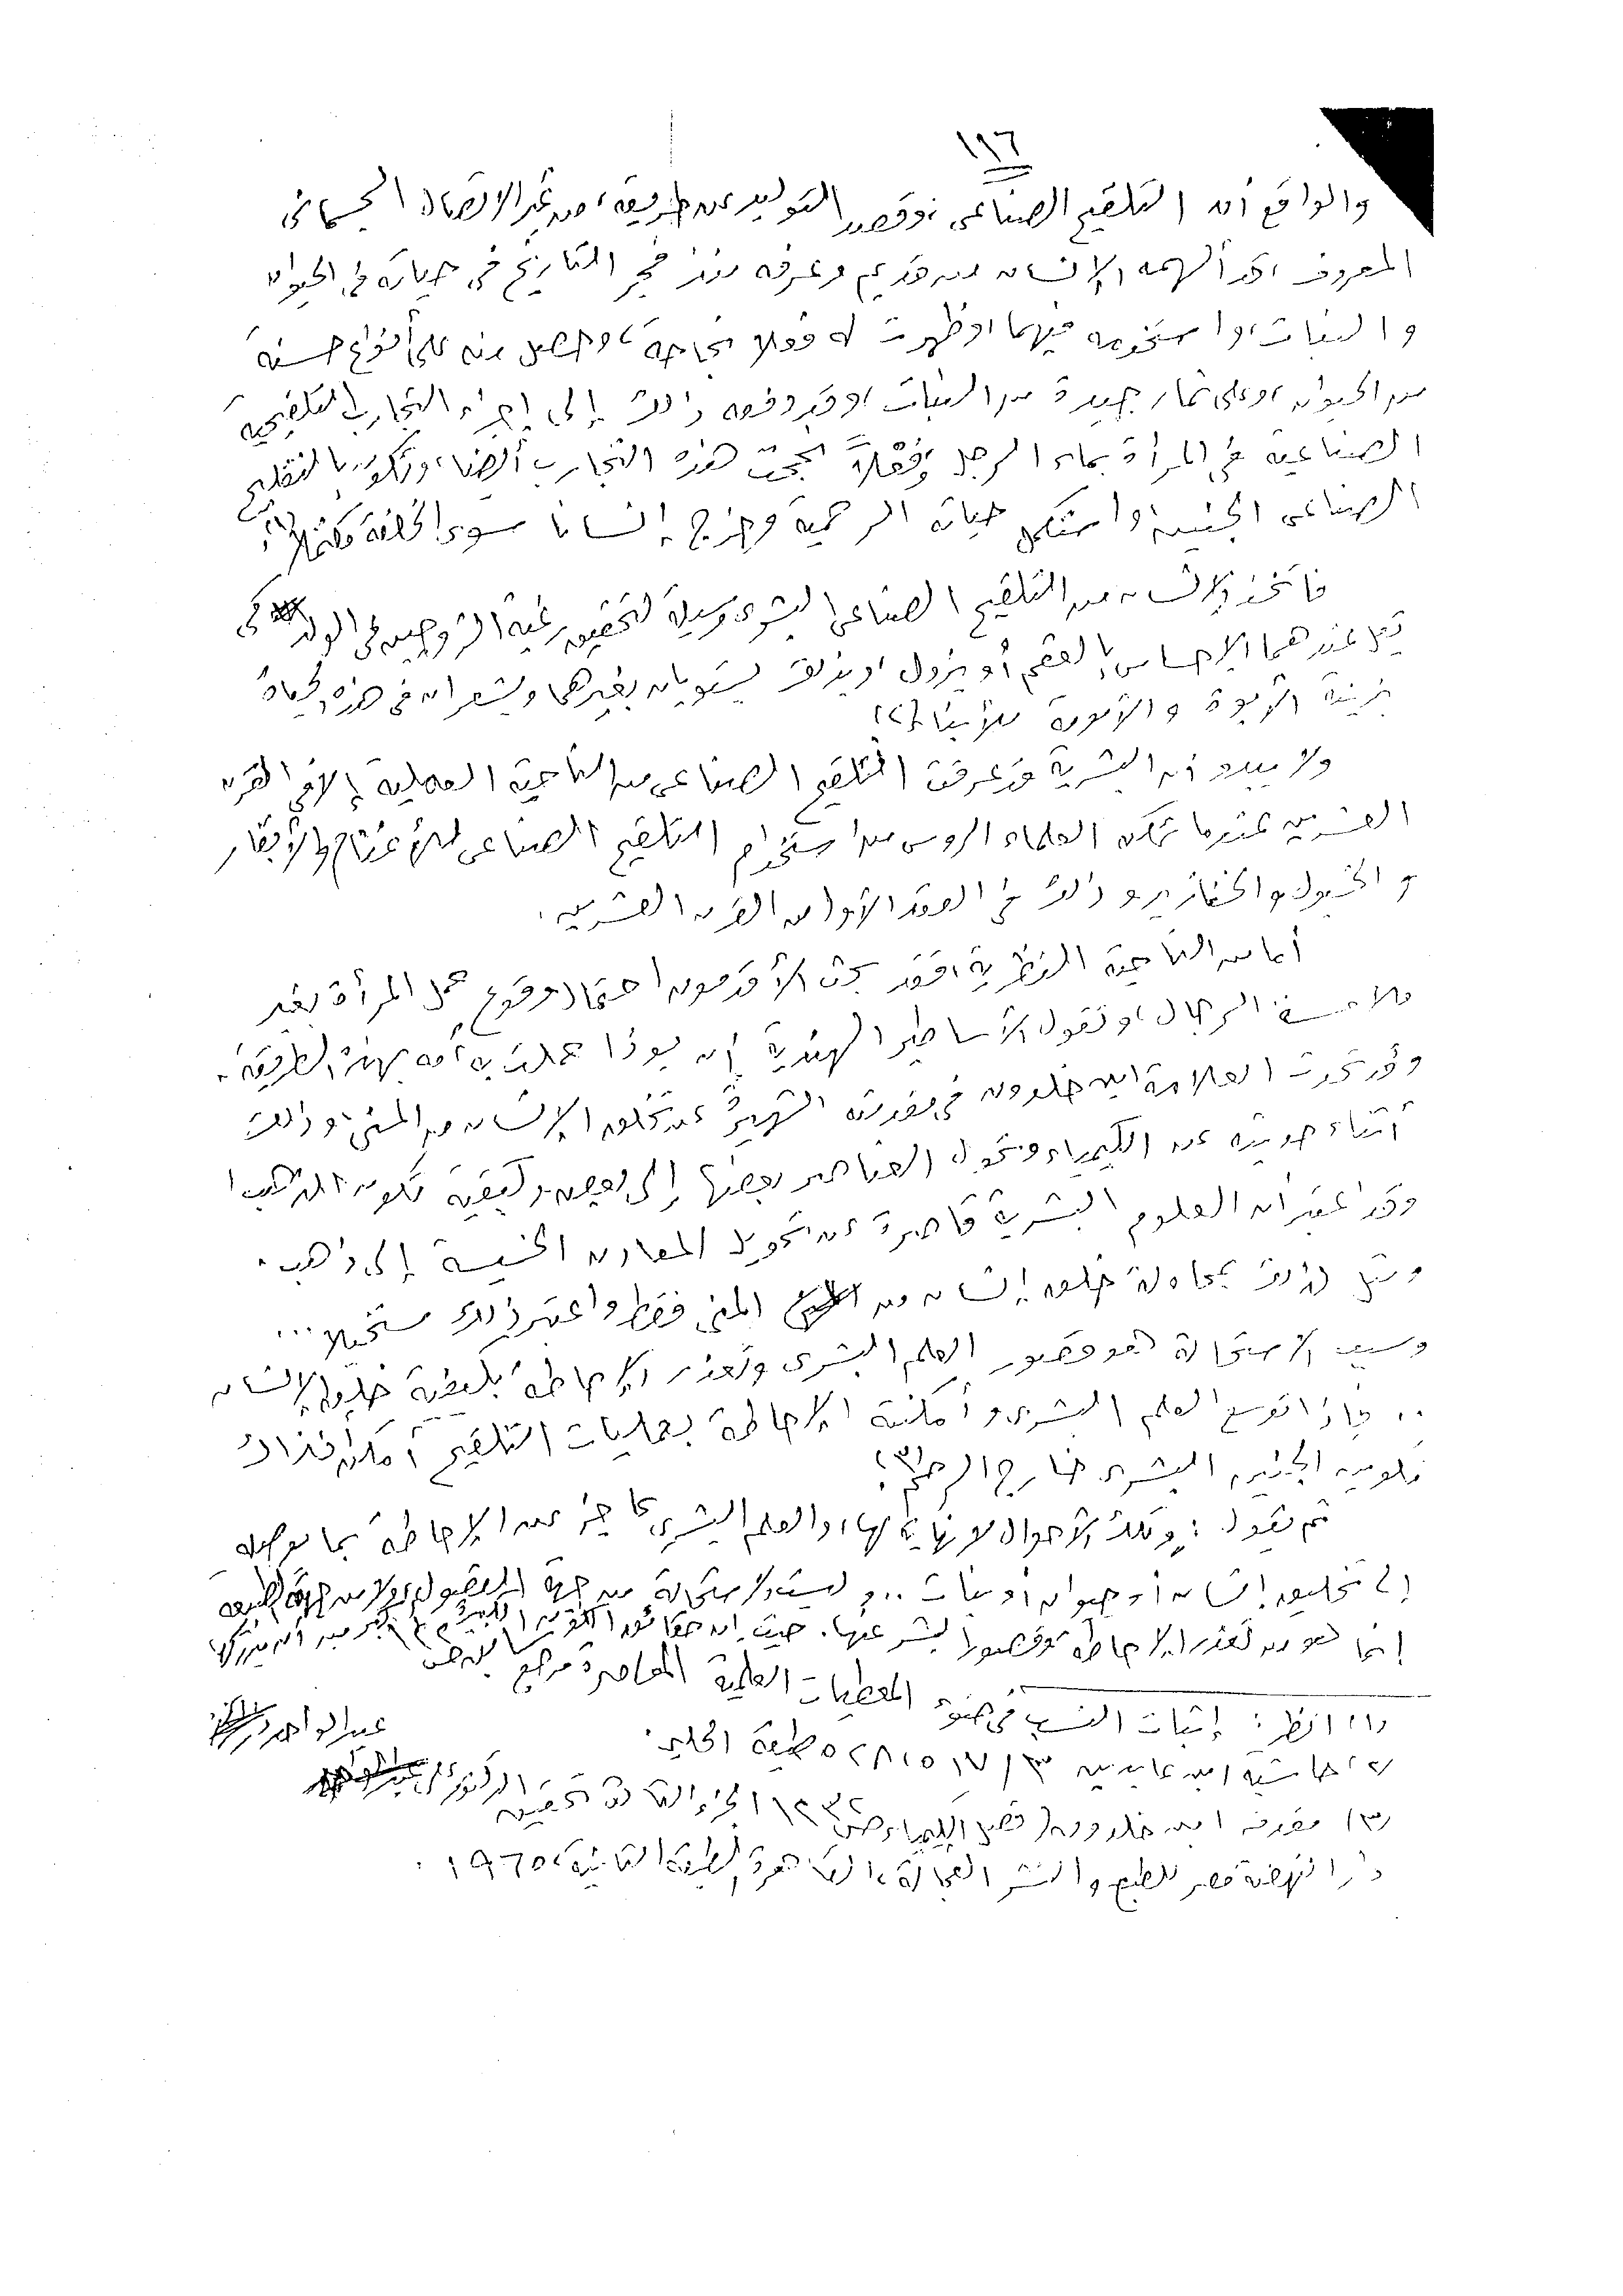 ١٩٦
والواقع أن التلقيح الصناعى، وقصد التوليد عن طريقه، من غير الاتصال الجسمانى
المعروف، قد ألهمه الإنسان من قديم وعرفه منذ فجر التاريخ فى حياته فى الحيوان
والنبات، واستخدمه فيهما، وظهرت له فعلا نجاحه، وحصل منه على أنواع حسنة
من الحيوان، وعلى ثمار جيدة من النبات، وقد دفعه ذلك إلى إجراء التجارب التلقيحية
الصناعية فى المرأة بماء الرجل وفعلاً نجحت هذه التجارب أيضا، وتكون بالتلقيح
الصناعى الجنين واستكمل حياته الرحمية وخرج إنسانا سوى الخلقة مكتملا(١)
فاتخذ الإنسان من التلقيح الصناعى البشرى وسيلة لتحقيق رغبة الزوجين فى الولد كى
يقل عندهما الإحساس بالعقم أو يزول، وبذلك يستويان بغيرهما ويشعران فى هذه الحياة
بزينة الأبوة والأمومة للأبناء(٢)
ولا يبدو أن البشرية قد عرفت التلقيح الصناعى من الناحية العملية إلا فى القرن
العشرين عندما تمكن العلماء الروس من استخدام التلقيح الصناعى للأغنام والأبقار
والخيول والخنازير وذلك فى العقد الأول من القرن العشرين.
أما من الناحية النظرية، فقد بحث الأقدمون احتمال وقوع حمل المرأة بغير
ملامسة الرجال، وتقول الأساطير الهندية إن بوذا حملت به أمه بهذه الطريقة.
وقد تحدث العلامة ابن خلدون فى مقدمته الشهيرة عن تخلق الإنسان من المنى، وذلك
أثناء حديثه عن الكيمياء وتحول العناصر بعضها إلى بعض وكيفية تكون الذهب
وقد اعتبر أن العلوم البشرية قاصرة عن تحويل المعادن الخسيسة إلى ذهب.
ومثل لذلك بمحاولة خلق إنسان من المنى فقط واعتبر ذلك مستحيلا...
وسبب الاستحالة هو قصور العلم البشرى وتعذر الإحاطة بكيفية خلق الإنسان
.. فإذا توسع العلم البشرى وأمكنته الإحاطة بعمليات التلقيح أمكن آنذاك
تكوين الجنين البشرى خارج الرحم(٣)
ثم يقول: وتلك الأحوال لا نهاية لها، والعلم البشرى عاجز عن الإحاطة بما توصله
إلى تخليق إنسان أو حيوان أو نبات.. وليست الاستحالة من جهة الفصول، ولا من جهة الطبيعة
إنما هو من تعذر الإحاطة وقصور البشر عنها. حيث إن حقائق الكون الكبير أكبر من أن يدركها
(١) انظر: إثبات النسب فى ضوء المعطيات العلمية المعاصرة مرجع سابق ص
(٢) حاشية ابن عابدين ٣/ ٥١٧، ٥٢٨ طبعة الحلبى.
(٣) مقدمة ابن خلدون (فصل الكيمياء ص ١٢٣٢ الجزء الثالث تحقيق الدكتور على عبد الواحد
دار نهضة مصر للطبع والنشر الفجالة، القاهرة، الطبعة الثانية، ١٩٦٥.